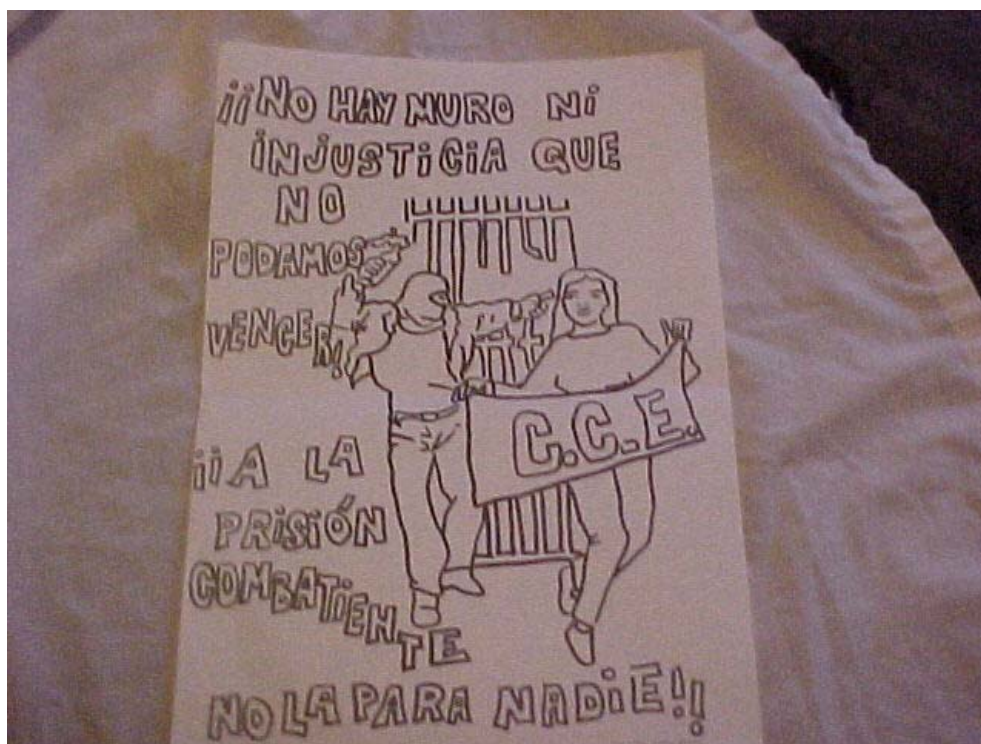 ¡¡NO HAY MURO NI
INJUSTICIA QUE
NO
PODAMOS
VENCER!
C.C.E.
¡¡A LA
PRISIÓN
COMBATIENTE
NO LA PARA NADIE!!